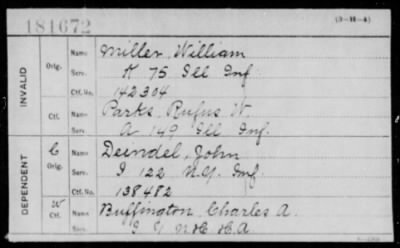 181672
(3-H-4)
INVALID
Orig.
Name Miller, William
Serv. K 75 Ill Inf
Ctf. No. 142304
Ctf.
Name Parks, Rufus W.
Serv. A 149 Ill Inf.
DEPENDENT
C
Orig.
Name Deindel, John
Serv. I 122 N.Y. Inf
Ctf. No. 138482
W
Ctf.
Name Buffington, Charles A.
H.A.